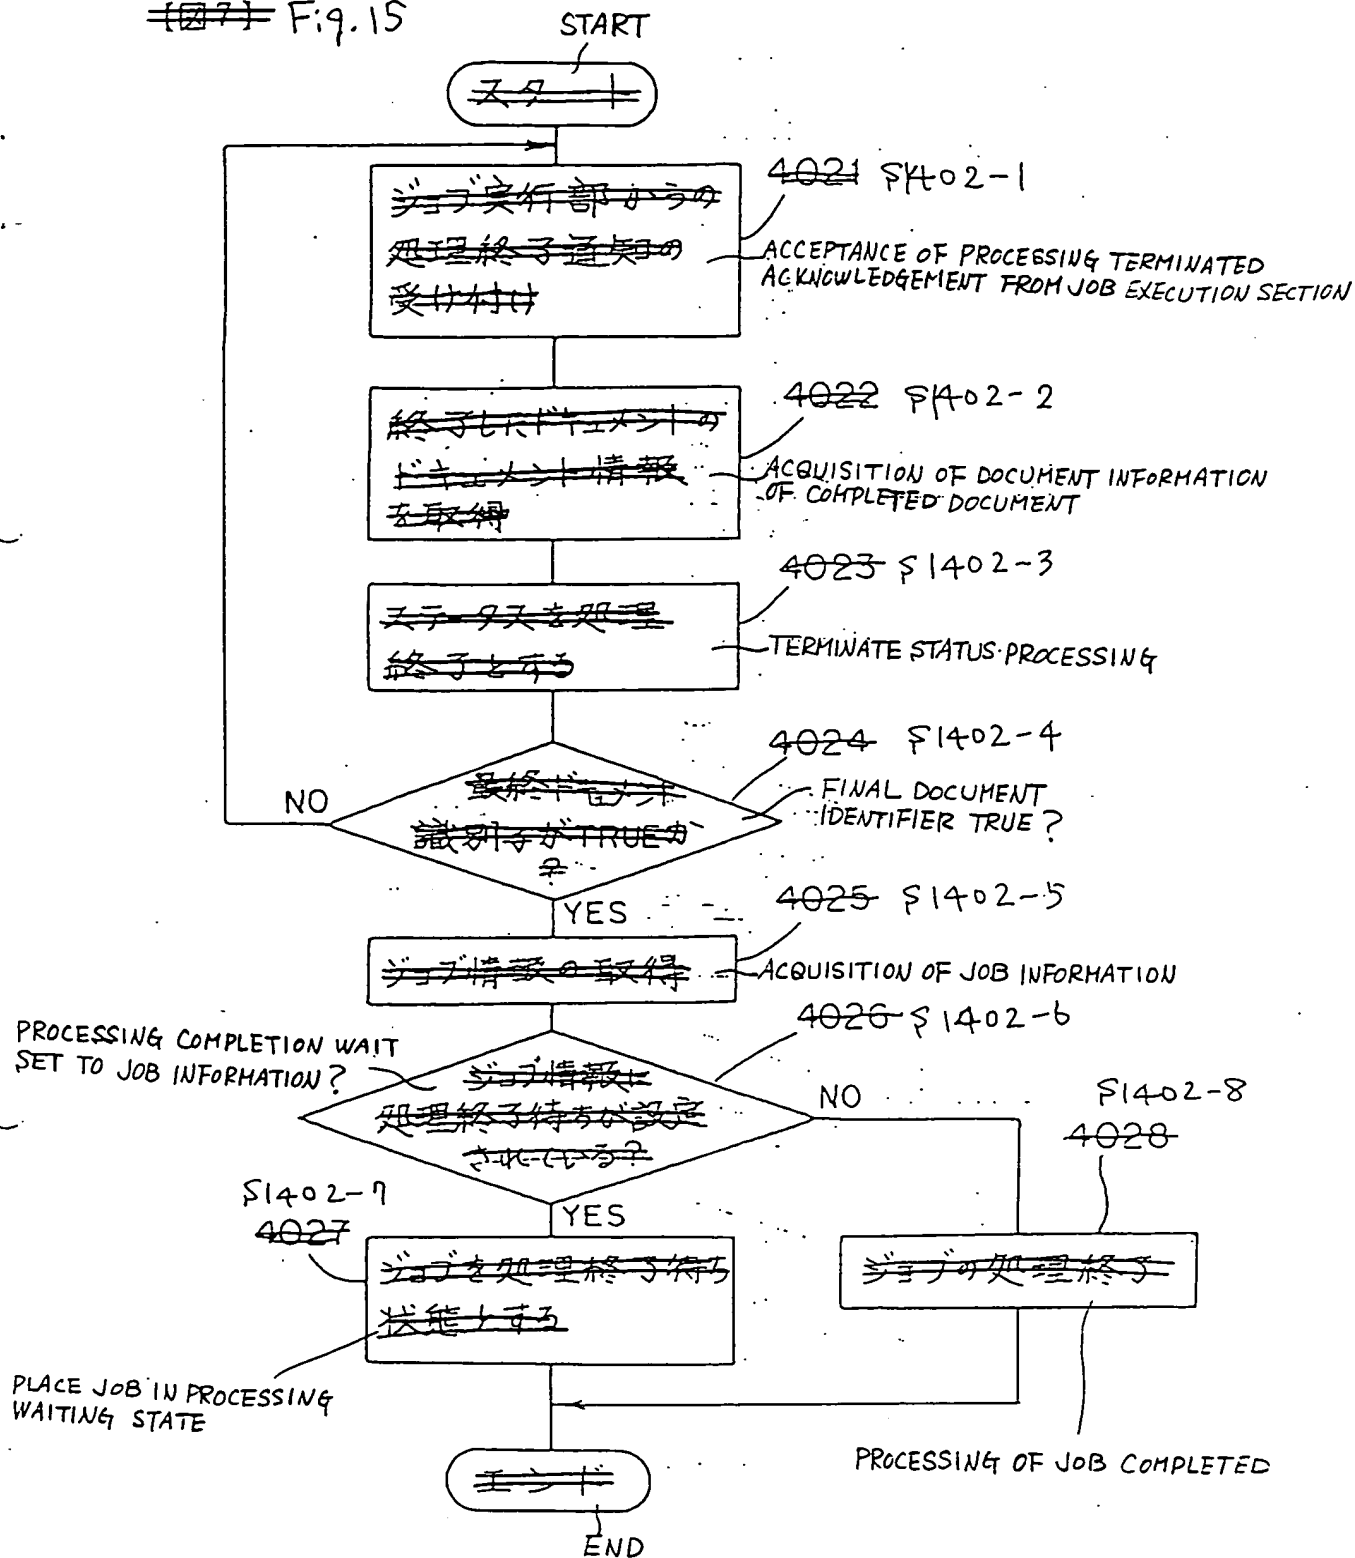 【図7】 Fig.15
START
スタート
4021 S1402-1
ジョブ実行部からの
処理終了通知の
受け付け
ACCEPTANCE OF PROCESSING TERMINATED
ACKNOWLEDGEMENT FROM JOB EXECUTION SECTION
4022 S1402-2
終了したドキュメントの
ドキュメント情報
を取得
ACQUISITION OF DOCUMENT INFORMATION
OF COMPLETED DOCUMENT
4023 S1402-3
ステータスを処理
終了とする
TERMINATE STATUS PROCESSING
4024 S1402-4
最終ドキュメント
識別子がTRUEか
?
FINAL DOCUMENT
IDENTIFIER TRUE?
NO
YES
4025 S1402-5
ジョブ情報の取得
ACQUISITION OF JOB INFORMATION
4026 S1402-6
PROCESSING COMPLETION WAIT
SET TO JOB INFORMATION?
ジョブ情報に
処理終了待ちが設定
されている?
NO
YES
S1402-8
4028
S1402-7
4027
ジョブを処理終了待ち
状態とする
ジョブの処理終了
PLACE JOB IN PROCESSING
WAITING STATE
PROCESSING OF JOB COMPLETED
エンド
END